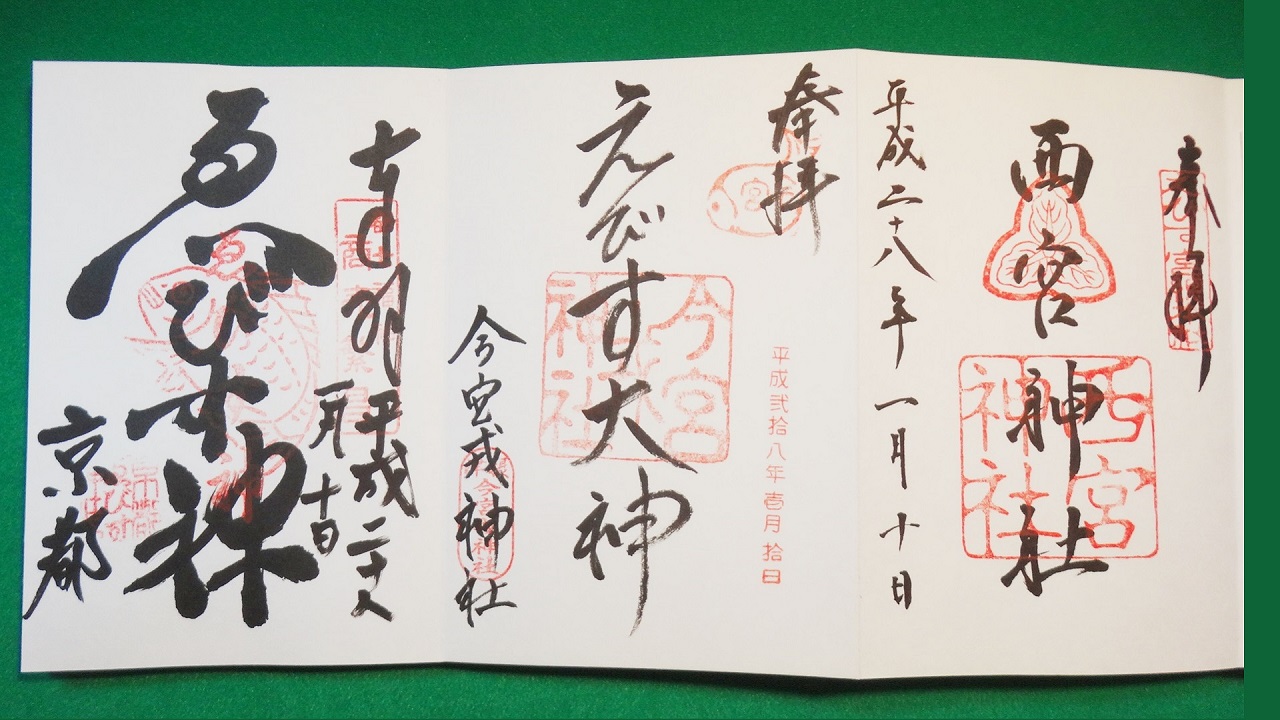 奉拝
西宮神社
西宮神社
平成二十八年一月十日
奉拝
宮
えびす大神
今宮神社
平成弐拾八年壱月拾日
今宮戎神社
奉拝
平成二十八
一月十日
ゑびす神
京都